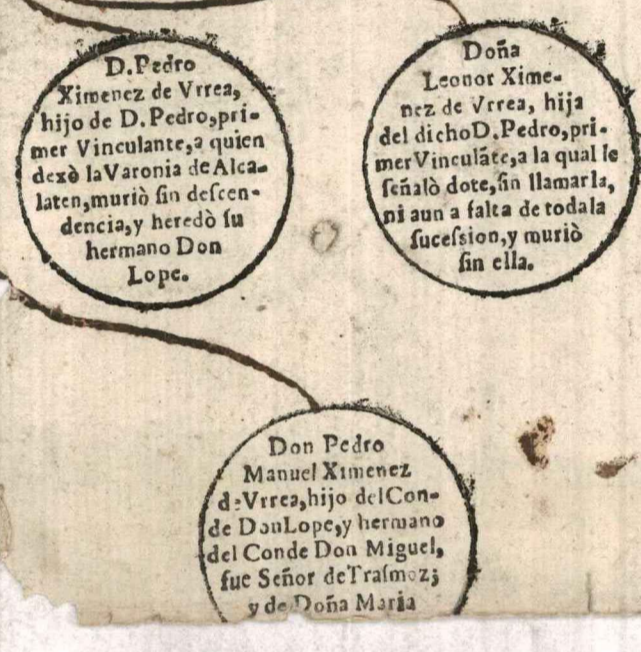 D. Pedro
Ximenez de Vrrea,
hijo de D. Pedro, pri-
mer Vinculante, a quien
dexò la Varonia de Alca-
laten, muriò sin descen-
dencia, y heredò su
hermano Don
Lope.
Doña
Leonor Xime-
nez de Vrrea, hija
del dicho D. Pedro, pri-
mer Vinculãte, a la qual le
señalò dote, sin llamarla,
ni aun a falta de toda la
sucession, y muriò
sin ella.
Don Pedro
Manuel Ximenez
de Vrrea, hijo del Con-
de Don Lope, y hermano
del Conde Don Miguel,
fue Señor de Trasmoz;
y de Doña Maria